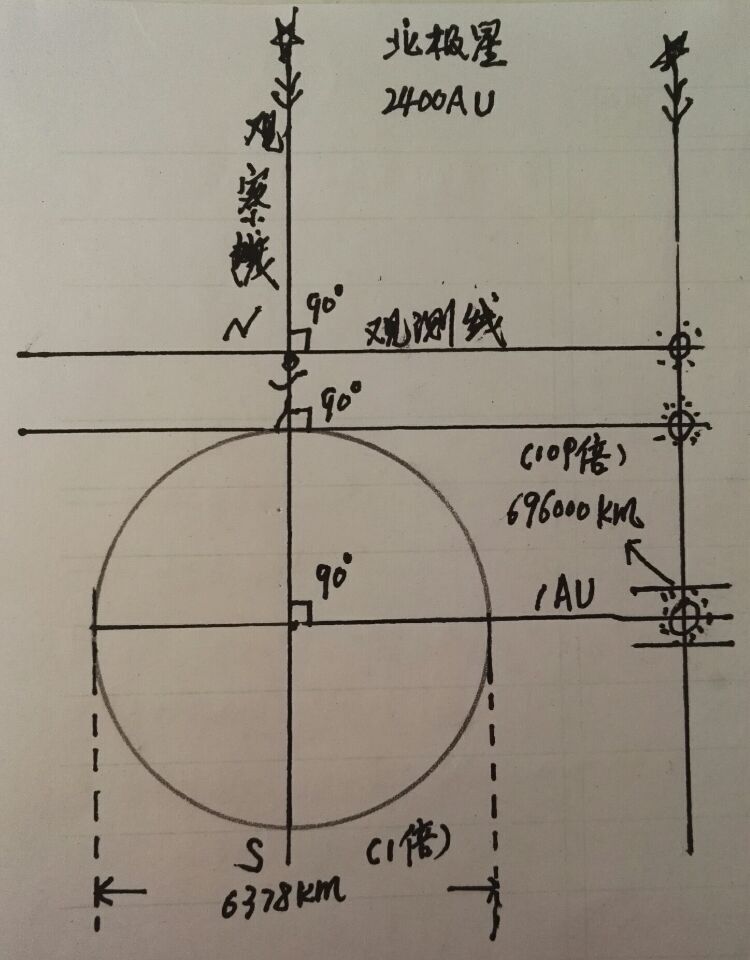 北极星
2400AU
观察
N
90°
观测线
90°
(109倍)
696000km
90°
1AU
S
(1倍)
6378km